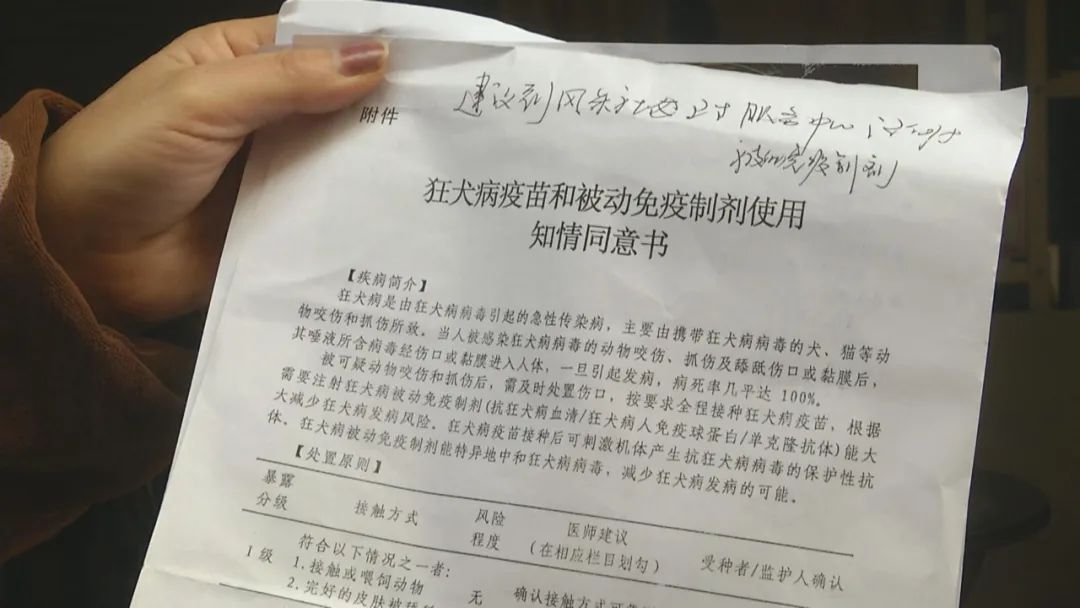 建议到风采社区卫生服务中心注射
被动免疫制剂
附件
狂犬病疫苗和被动免疫制剂使用
知情同意书
【疾病简介】
狂犬病是由狂犬病病毒引起的急性传染病，主要由携带狂犬病病毒的犬、猫等动
物咬伤和抓伤所致。当人被感染狂犬病病毒的动物咬伤、抓伤及舔舐伤口或黏膜后，
其唾液所含病毒经伤口或黏膜进入人体，一旦引起发病，病死率几乎达 100%。
被可疑动物咬伤和抓伤后，需及时处置伤口，按要求全程接种狂犬病疫苗，根据
需要注射狂犬病被动免疫制剂(抗狂犬病血清/狂犬病人免疫球蛋白/单克隆抗体)能大
大减少狂犬病发病风险。狂犬病疫苗接种后可刺激机体产生抗狂犬病病毒的保护性抗
体。狂犬病被动免疫制剂能特异地中和狂犬病病毒，减少狂犬病发病的可能。
【处置原则】
暴露
分级
接触方式
风险
程度
医师建议
(在相应栏目划勾)
受种者/监护人确认
I 级
符合以下情况之一者：
1.接触或喂饲动物
2.完好的皮肤被舔
无
确认接触方式可